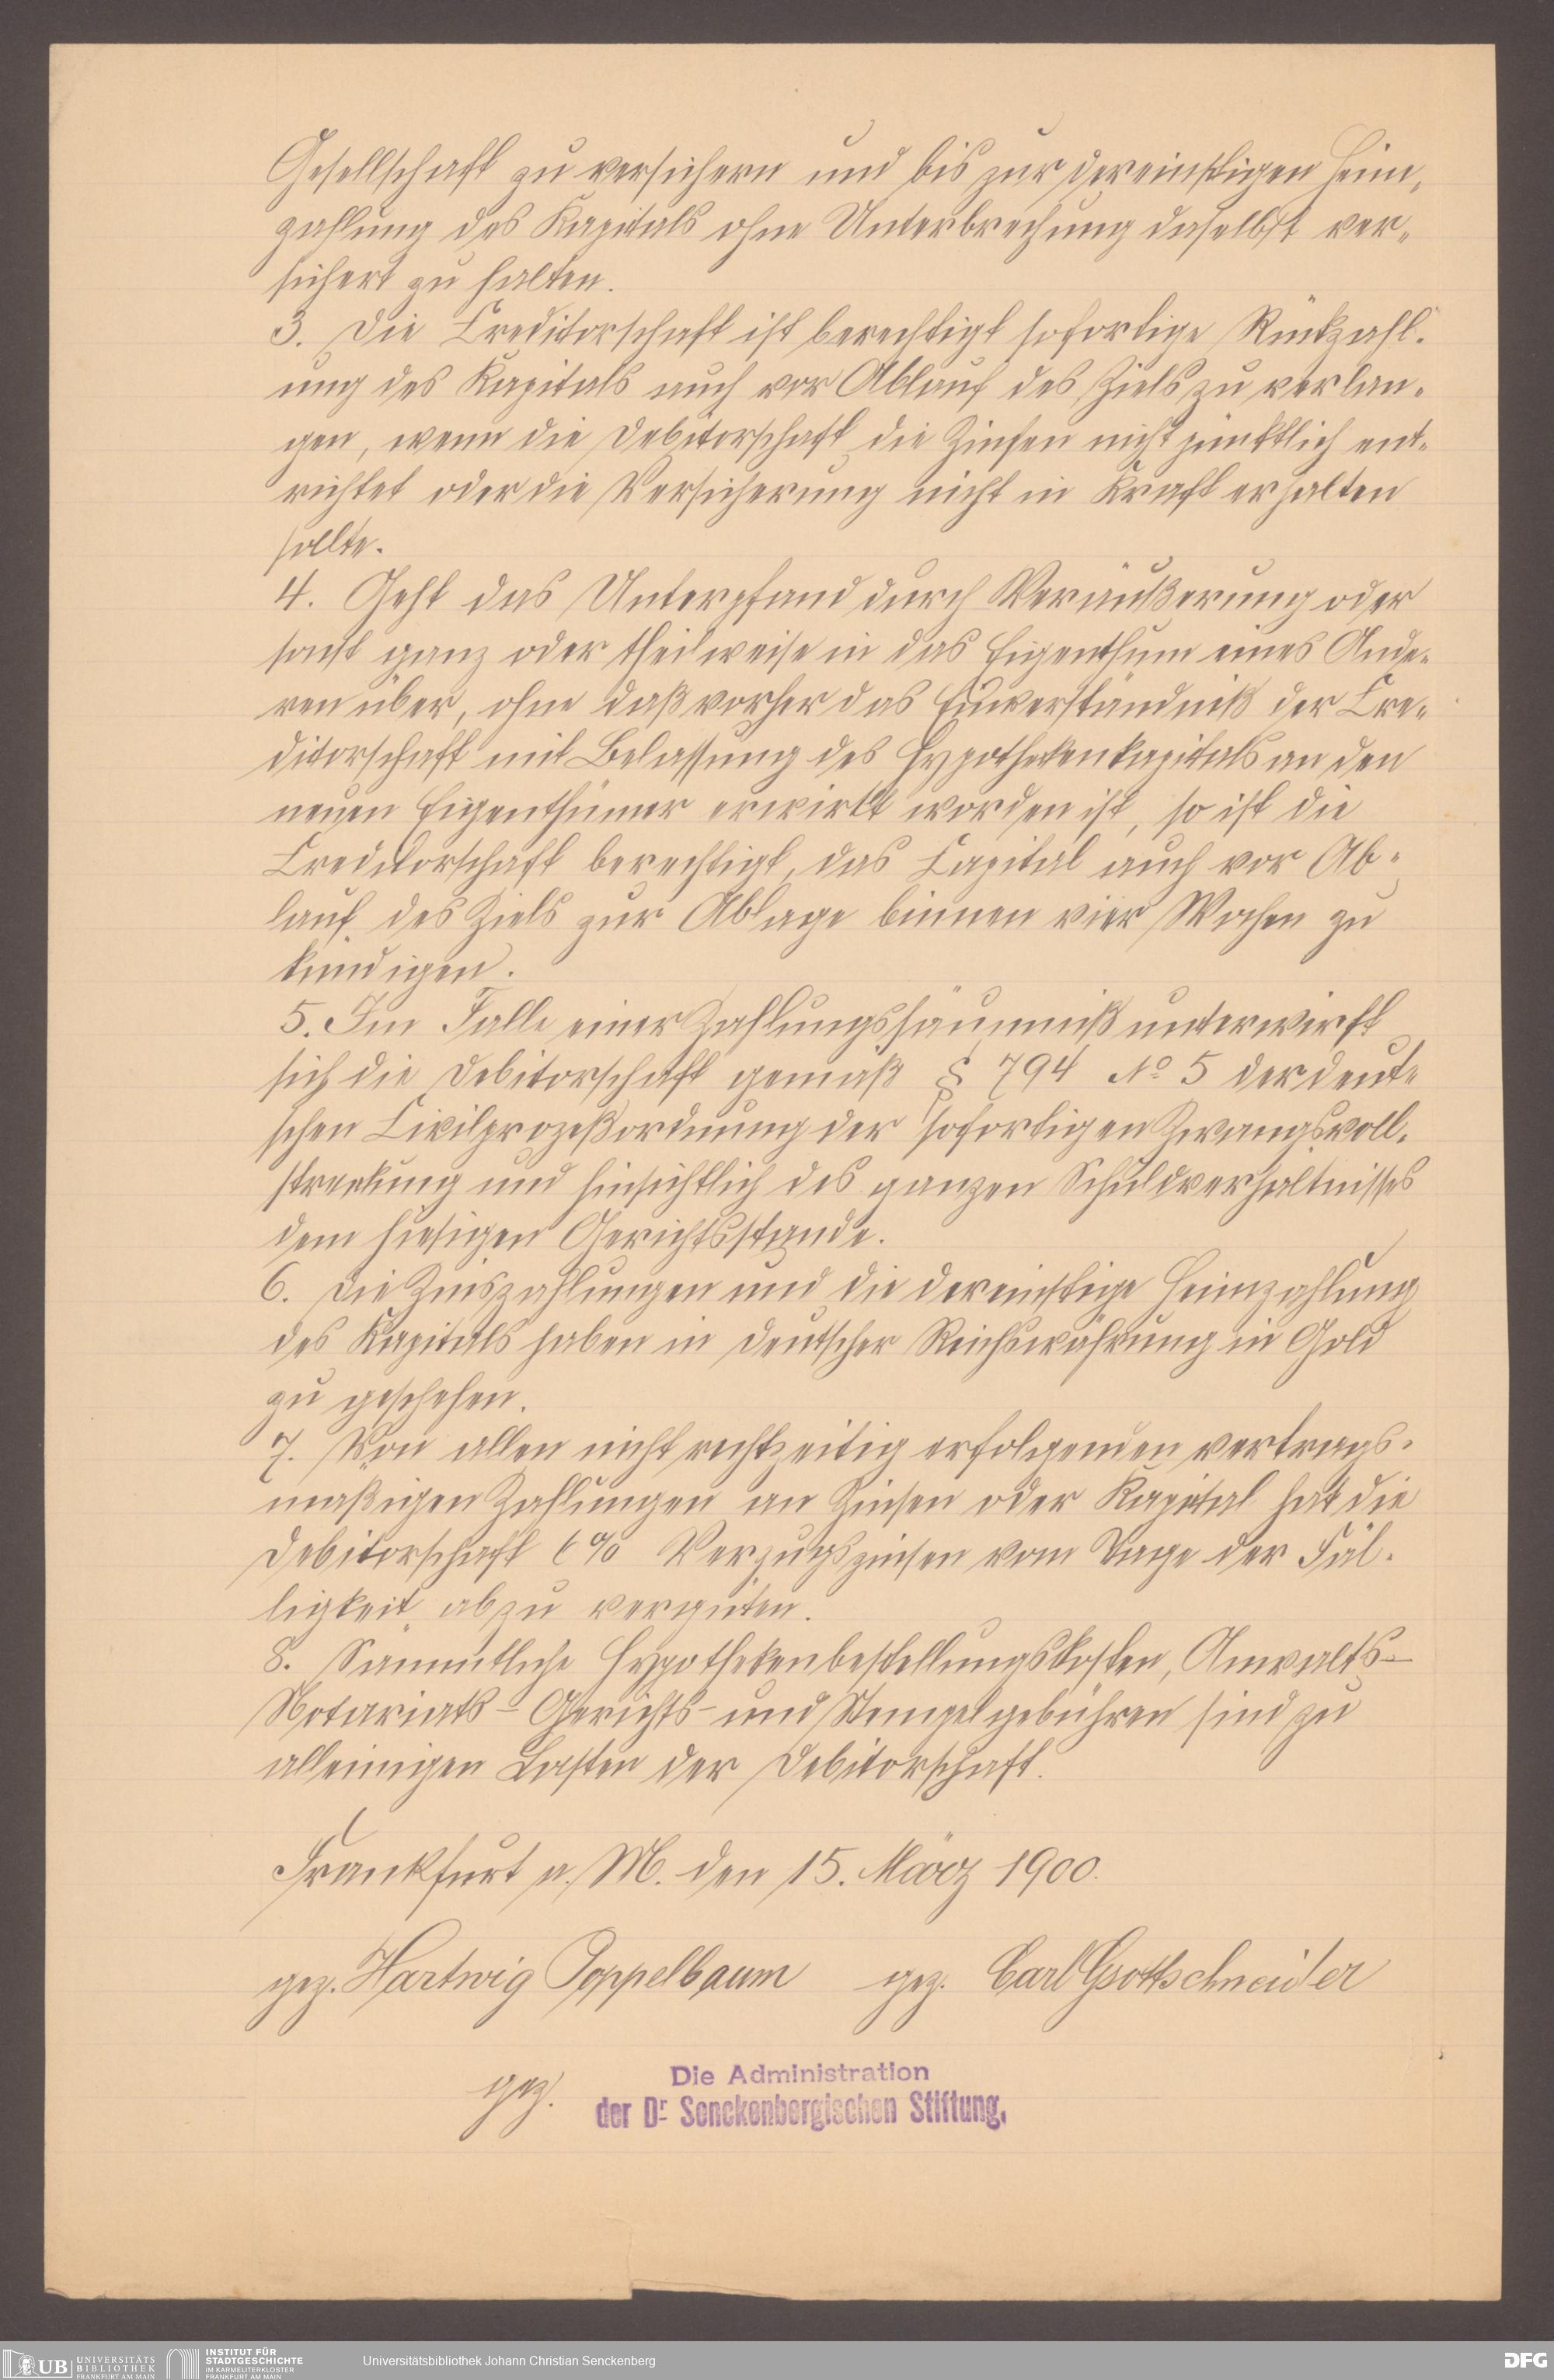 Gesellschaft zu versichern und bis zur dereinstigen Heim-
zahlung des Kapitals ohne Unterbrechung daselbst ver-
sichert zu halten.
3. Die Creditorschaft ist berechtigt sofortige Rückzahl-
ung des Kapitals auch vor Ablauf des Ziels zu verlan-
gen, wenn die Debitorschaft die Zinsen nicht pünktlich ent-
richtet oder die Versicherung nicht in Kraft erhalten
sollte.
4. Geht das Unterpfand durch Veräußerung oder
sonst ganz oder theilweise in das Eigenthum eines Ande-
ren über, ohne daß vorher das Einverständniß der Cre-
ditorschaft mit Belassung des Hypothekenkapitals an den
neuen Eigenthümer erwirkt worden ist, so ist die
Creditorschaft berechtigt, das Capital auch vor Ab-
lauf des Ziels zur Ablage binnen vier Wochen zu
kündigen.
5. Im Falle einer Zahlungssäumniß unterwirft
sich die Debitorschaft gemäß § 794 No 5 der deut-
schen Civilprozeßordnung der sofortigen Zwangsvoll-
streckung und hinsichtlich des ganzen Schuldverhältnisses
dem hiesigen Gerichtsstande.
6. Die Zinszahlungen und die dereinstige Heimzahlung
des Kapitals haben in deutscher Reichswährung in Gold
zu geschehen.
7. Von allen nicht rechtzeitig erfolgenden vertrags-
mäßigen Zahlungen an Zinsen oder Kapital hat die
Debitorschaft 6% Verzugszinsen vom Tage der Fäl-
ligkeit ab zu vergüten.
8. Sämmtliche Hypothekenbestellungskosten, Anwalts-
Notariats- Gerichts- und Stempelgebühren sind zu
alleinigen Lasten der Debitorschaft.
Frankfurt a. M. den 15. März 1900.
gez. Hartwig Poppelbaum gez. Carl Gottschneider
gez. Die Administration
der Dr. Senckenbergischen Stiftung.
UB UNIVERSITÄTS
BIBLIOTHEK
FRANKFURT AM MAIN
INSTITUT FÜR
STADTGESCHICHTE
IM KARMELITERKLOSTER
FRANKFURT AM MAIN
Universitätsbibliothek Johann Christian Senckenberg
DFG